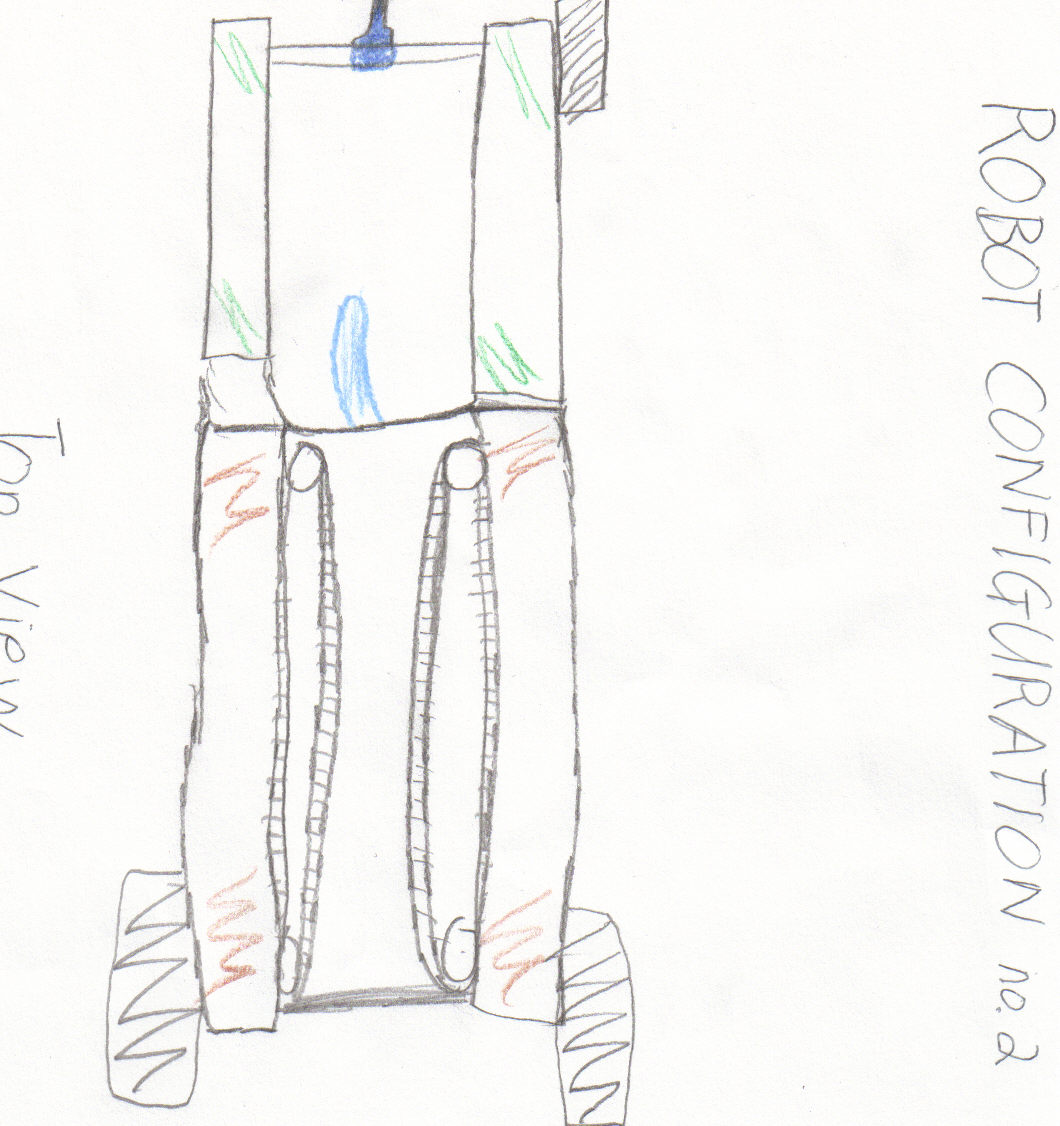 ROBOT CONFIGURATION no. 2
Top View